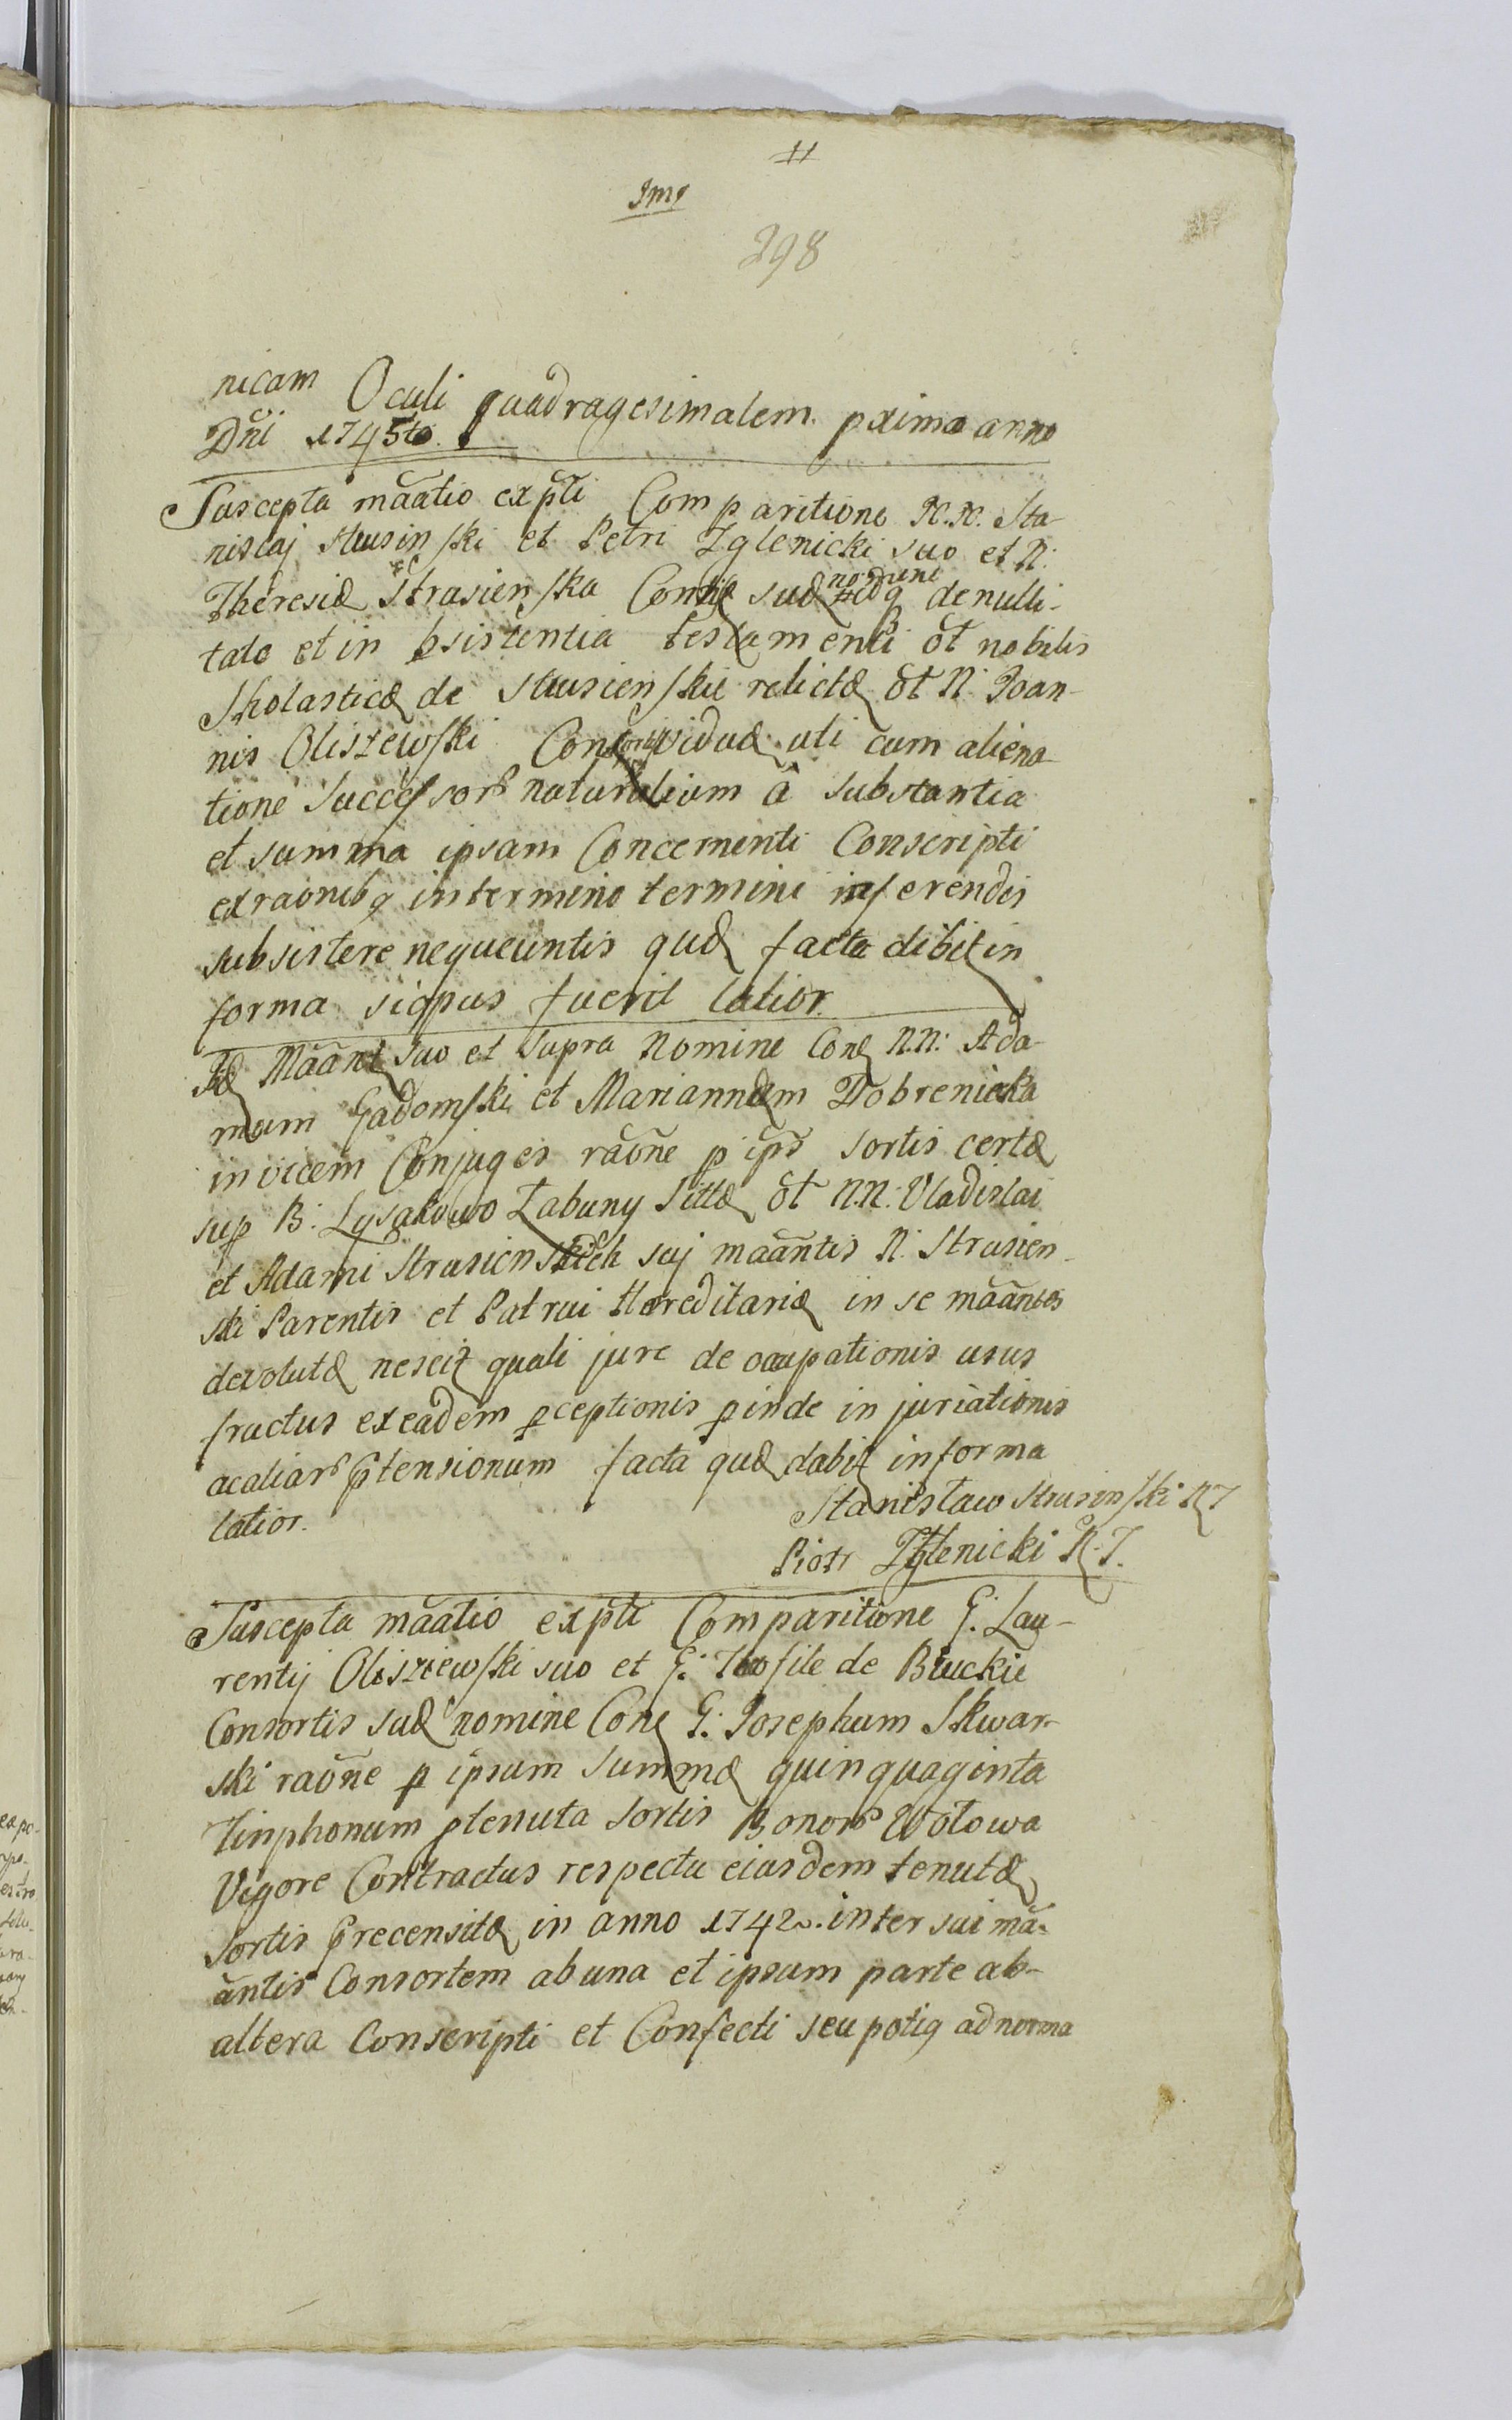 11
Img
298
nicam Oculi quadragesimalem pxima anno
Dni 1745to.
Suscepta mãatio ex pti Comparitione N.N. Sta-
nislaj Strusinski et Petri Zglenicki suo et N:
Theresiæ Strusienska Contis suæ nomine denulli-
tate et in psistentia testamenti ôt nobilis
Scholasticæ de Strusienskie relictæ ôt N: Joan-
nis Oliszewski Consortis viduæ uti cum aliena-
tione successor naturalium â substantia
et summa ipsam Concernenti Conscripti
exraonibq intermino termini inferendis
subsistere nequeuntis quæ facta dibit in
forma siqpus fuerit latior.
Id Mãans suo et supra nomine Con N.N: Ada-
mum Gadomski et Mariannam Dobrenicka
invicem Conjuges raõne p ips sortis certæ
sup B: Lysakowo Zabuny sittæ ôt N.N: Vladislai
et Adami Strusienskich suj mãantis N: Strusien-
ski Parentis et Patrui Hæreditariæ in se mãantes
devolutæ nescit quali jure de ocupationis usus
fructus exeadem pceptionis pinde in juriationis
acaliar ptensionum facta quæ dabit informa
latior.
Stanisław Strusinski
Piotr Zglenicki
Suscepta mãatio ex pti Comparitione G: Lau-
rentij Oliszewski suo et G: Teofile de Bruckie
Consortis suæ nomine Con G: Josephum Skwar-
ski raõne p ipsum summæ quinquaginta
Tinphonum ptenuta sortis Bonor Wołowa
Vigore Contractus respectu eiusdem tenutæ
sortis precensitæ in anno 1742. inter sui mã-
ãntis Consortem abuna et ipsum parte ab-
altera Conscripti et Confecti seu potiq adnorma